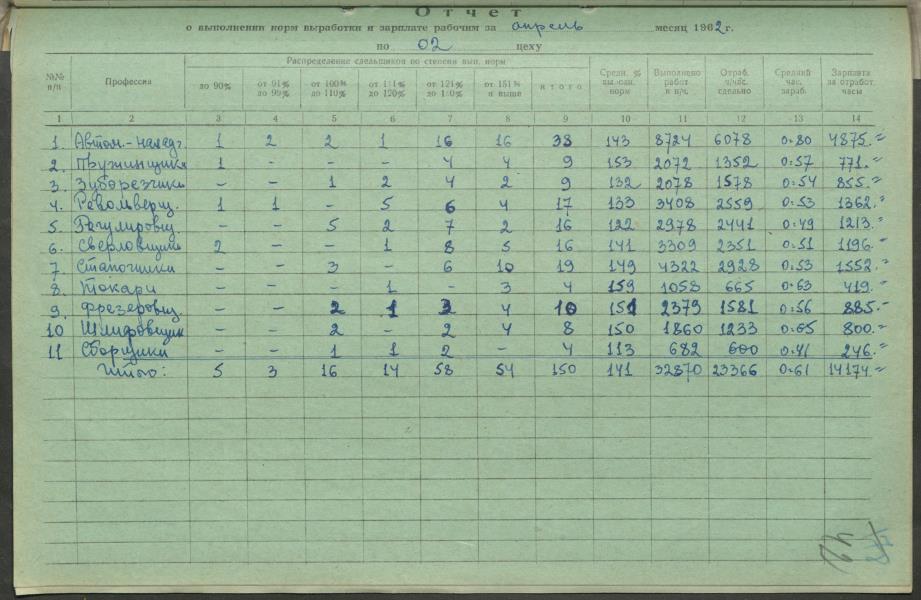 Отчет
о выполнении норм выработки и зарплате рабочим за апрель месяц 1962г.
по 02 цеху
№№ п/п Профессия Распределение сдельщиков по степени вып. норм Средн. % вып. норм Выполнено работ в н/ч. Отраб. ч/час. сдельно Средний час. зараб. Зарплата за отработ. часы
до 90% от 91% до 99% от 100% до 110% от 111% до 120% от 121% до 150% от 151% и выше итого
1 2 3 4 5 6 7 8 9 10 11 12 13 14
1. Автом.-налад. 1 2 2 1 16 16 38 143 8724 6078 0-80 4875.=
2. Пружинщики 1 - - - 4 4 9 153 2072 1352 0-57 771.=
3. Зуборезчики - - 1 2 4 2 9 132 2078 1578 0-54 855.=
4. Револьверщ. 1 1 - 5 6 4 17 133 3408 2559 0-53 1362.=
5. Регулировщ. - - 5 2 7 2 16 122 2978 2441 0-49 1213.=
6. Сверловщики 2 - - 1 8 5 16 141 3309 2351 0-51 1196.=
7. Станочники - - 3 - 6 10 19 149 4322 2928 0-53 1552.=
8. Токари - - - 1 - 3 4 159 1058 665 0-63 419.=
9. Фрезеровщ. - - 2 1 3 4 10 151 2379 1581 0-56 885.=
10 Шлифовщики - - 2 - 2 4 8 150 1860 1233 0-65 800.=
11 Сборщики - - 1 1 2 - 4 113 682 600 0-41 246.=
Итого: 5 3 16 14 58 54 150 141 32870 23366 0-61 14174.=